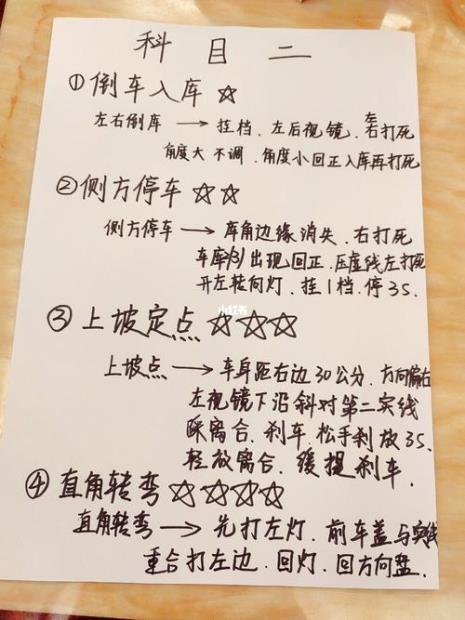 科目二
①倒车入库☆
左右倒库→挂档.左后视镜.左右打死
角度大不调.角度小回正入库再打死
②侧方停车☆☆
侧方停车→库角边缘消失.右打死
车库出现回正.压虚线左打死
开左转向灯.挂1档.停3S.
③上坡定点☆☆☆
上坡点→车身距右边30公分.方向偏右
左视镜下沿斜对第二实线
踩离合.刹车.松手刹放3S.
轻放离合.缓提刹车.
④直角转弯☆☆☆☆
直角转弯→先打左灯.前车盖与实线
重合打左边.回灯.回方向盘.
小红书